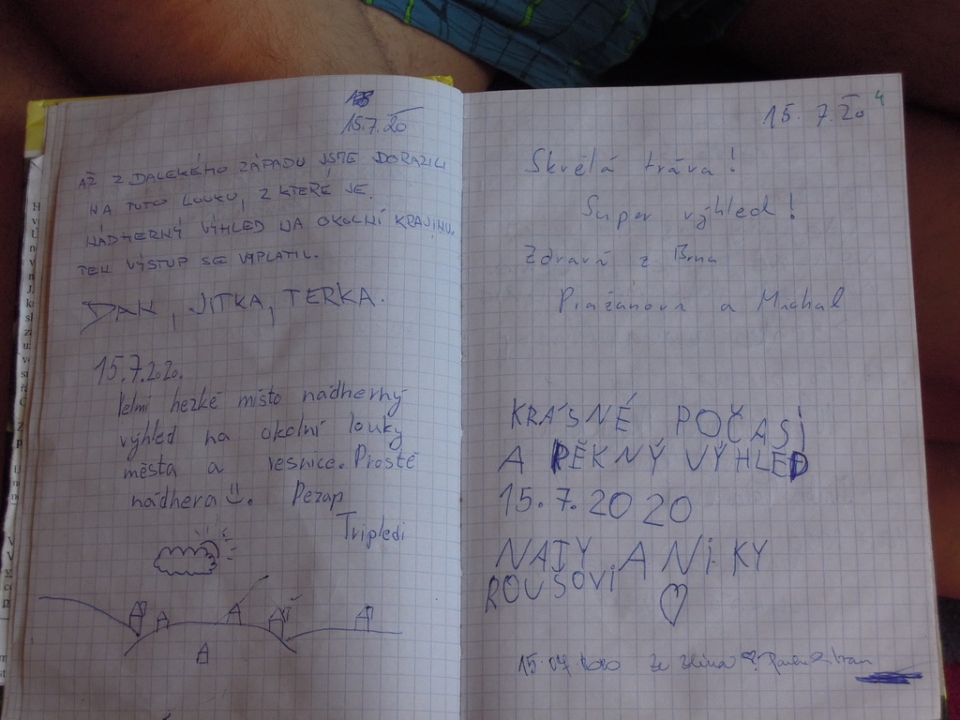 15.7.20
AŽ Z DALEKÉHO ZÁPADU JSTE DORAZILI
NA TUTO LOUKU, Z KTERÉ JE
NÁDHERNÝ VÝHLED NA OKOLNÍ KRAJINU.
TEN VÝSTUP SE VYPLATIL.
DAN, JITKA, TERKA.
15.7.2020.
Velmi hezké místo nádherný
výhled na okolní louky
města a vesnice. Prostě
nádhera
15. 7. 20
4
Skvělá tráva!
Super výhled!
Zdraví z Brna
a
KRÁSNÉ POČASÍ
A PĚKNÝ VÝHLED
15.7.2020
NATY A NiKY
ROUSOVi
15.07 2020 Ze Zlína